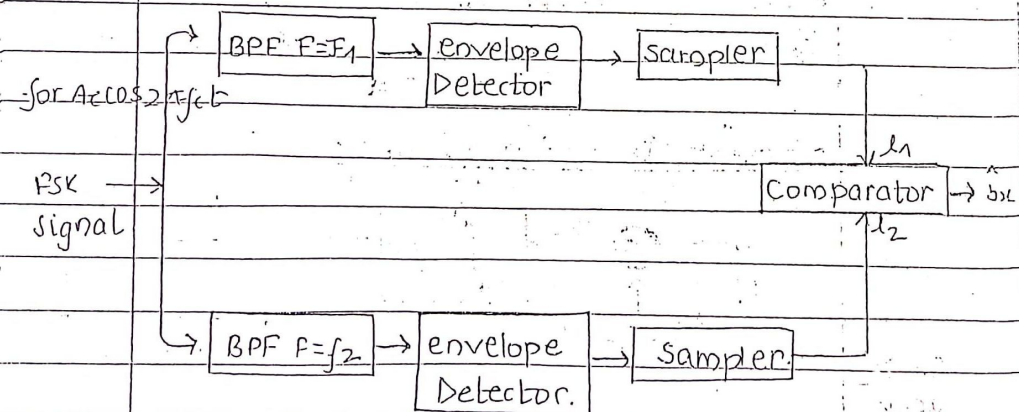 BPF F=F1
envelope
Detector
sampler
for Accos2πfct
FSK
signal
l1
Comparator
l2
BPF F=f2
envelope
Detector.
sampler.